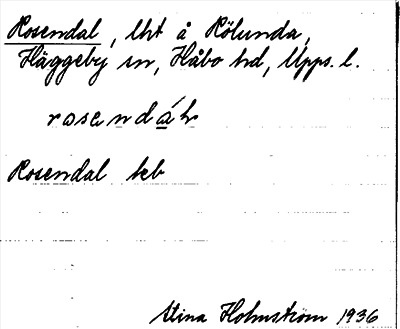 Rosendal, lht å Kölunda,
Häggeby sn, Håbo hd, Upps. l.
rosendáḷ
Rosendal keb
Stina Holmström 1936